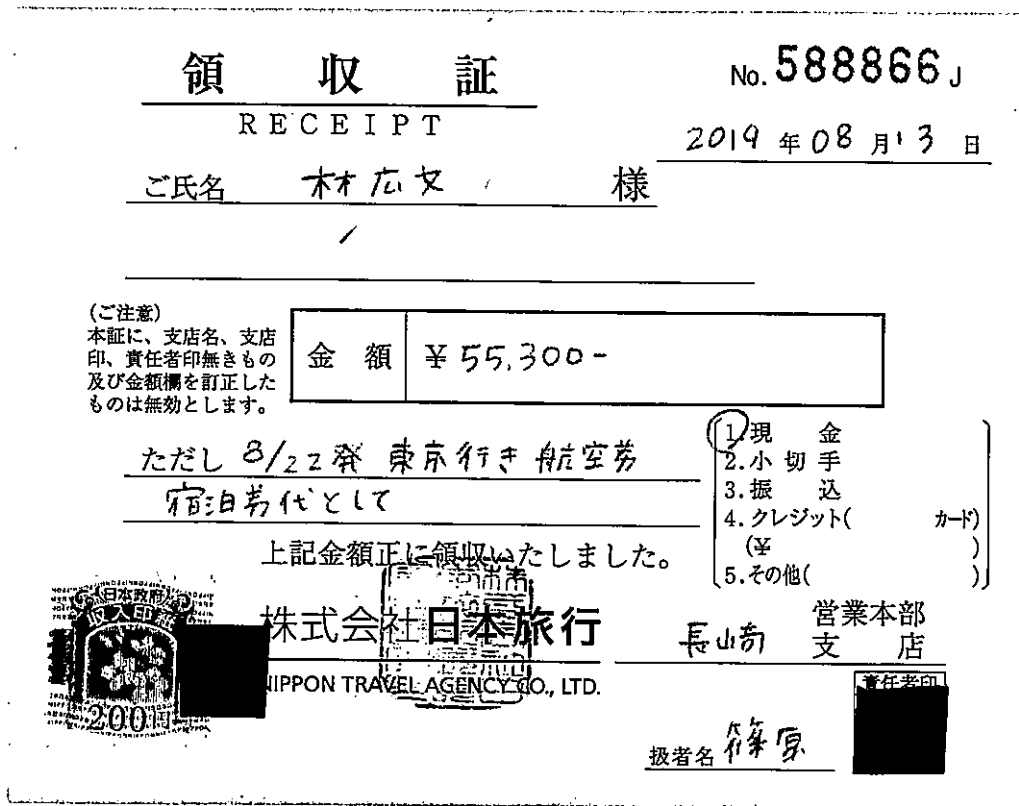 領収証
RECEIPT
No. 588866 J
2019年08月13日
ご氏名 林広文 様
(ご注意)
本証に、支店名、支店
印、責任者印無きもの
及び金額欄を訂正した
ものは無効とします。
金額 ¥55,300-
ただし 8/22発 東京行き 航空券
宿泊券代として
1.現金
2.小切手
3.振込
4.クレジット( カード)
(¥ )
5.その他( )
上記金額正に領収いたしました。
日本政府
収入印紙
200円
株式会社日本旅行
NIPPON TRAVEL AGENCY CO., LTD.
長崎 営業本部
支店
責任者印
扱者名 篠原